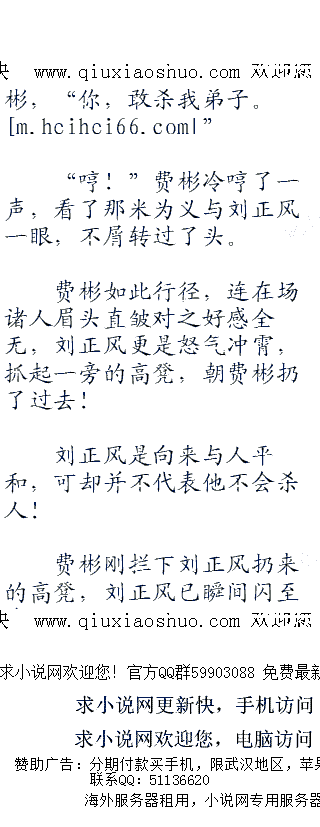 快 www.qiuxiaoshuo.com 欢迎您
彬，“你，敢杀我弟子。
[m.hcihci66.com|”
“哼！”费彬冷哼了一
声，看了那米为义与刘正风
一眼，不屑转过了头。
费彬如此行径，连在场
诸人眉头直皱对之好感全
无，刘正风更是怒气冲霄，
抓起一旁的高凳，朝费彬扔
了过去！
刘正风是向来与人平
和，可却并不代表他不会杀
人！
费彬刚拦下刘正风扔来
的高凳，刘正风已瞬间闪至
快 www.qiuxiaoshuo.com 欢迎您
求小说网欢迎您！官方QQ群59903088 免费最新
求小说网更新快，手机访问
求小说网欢迎您，电脑访问
赞助广告：分期付款买手机，限武汉地区，苹果
联系QQ：51136620
海外服务器租用，小说网专用服务器